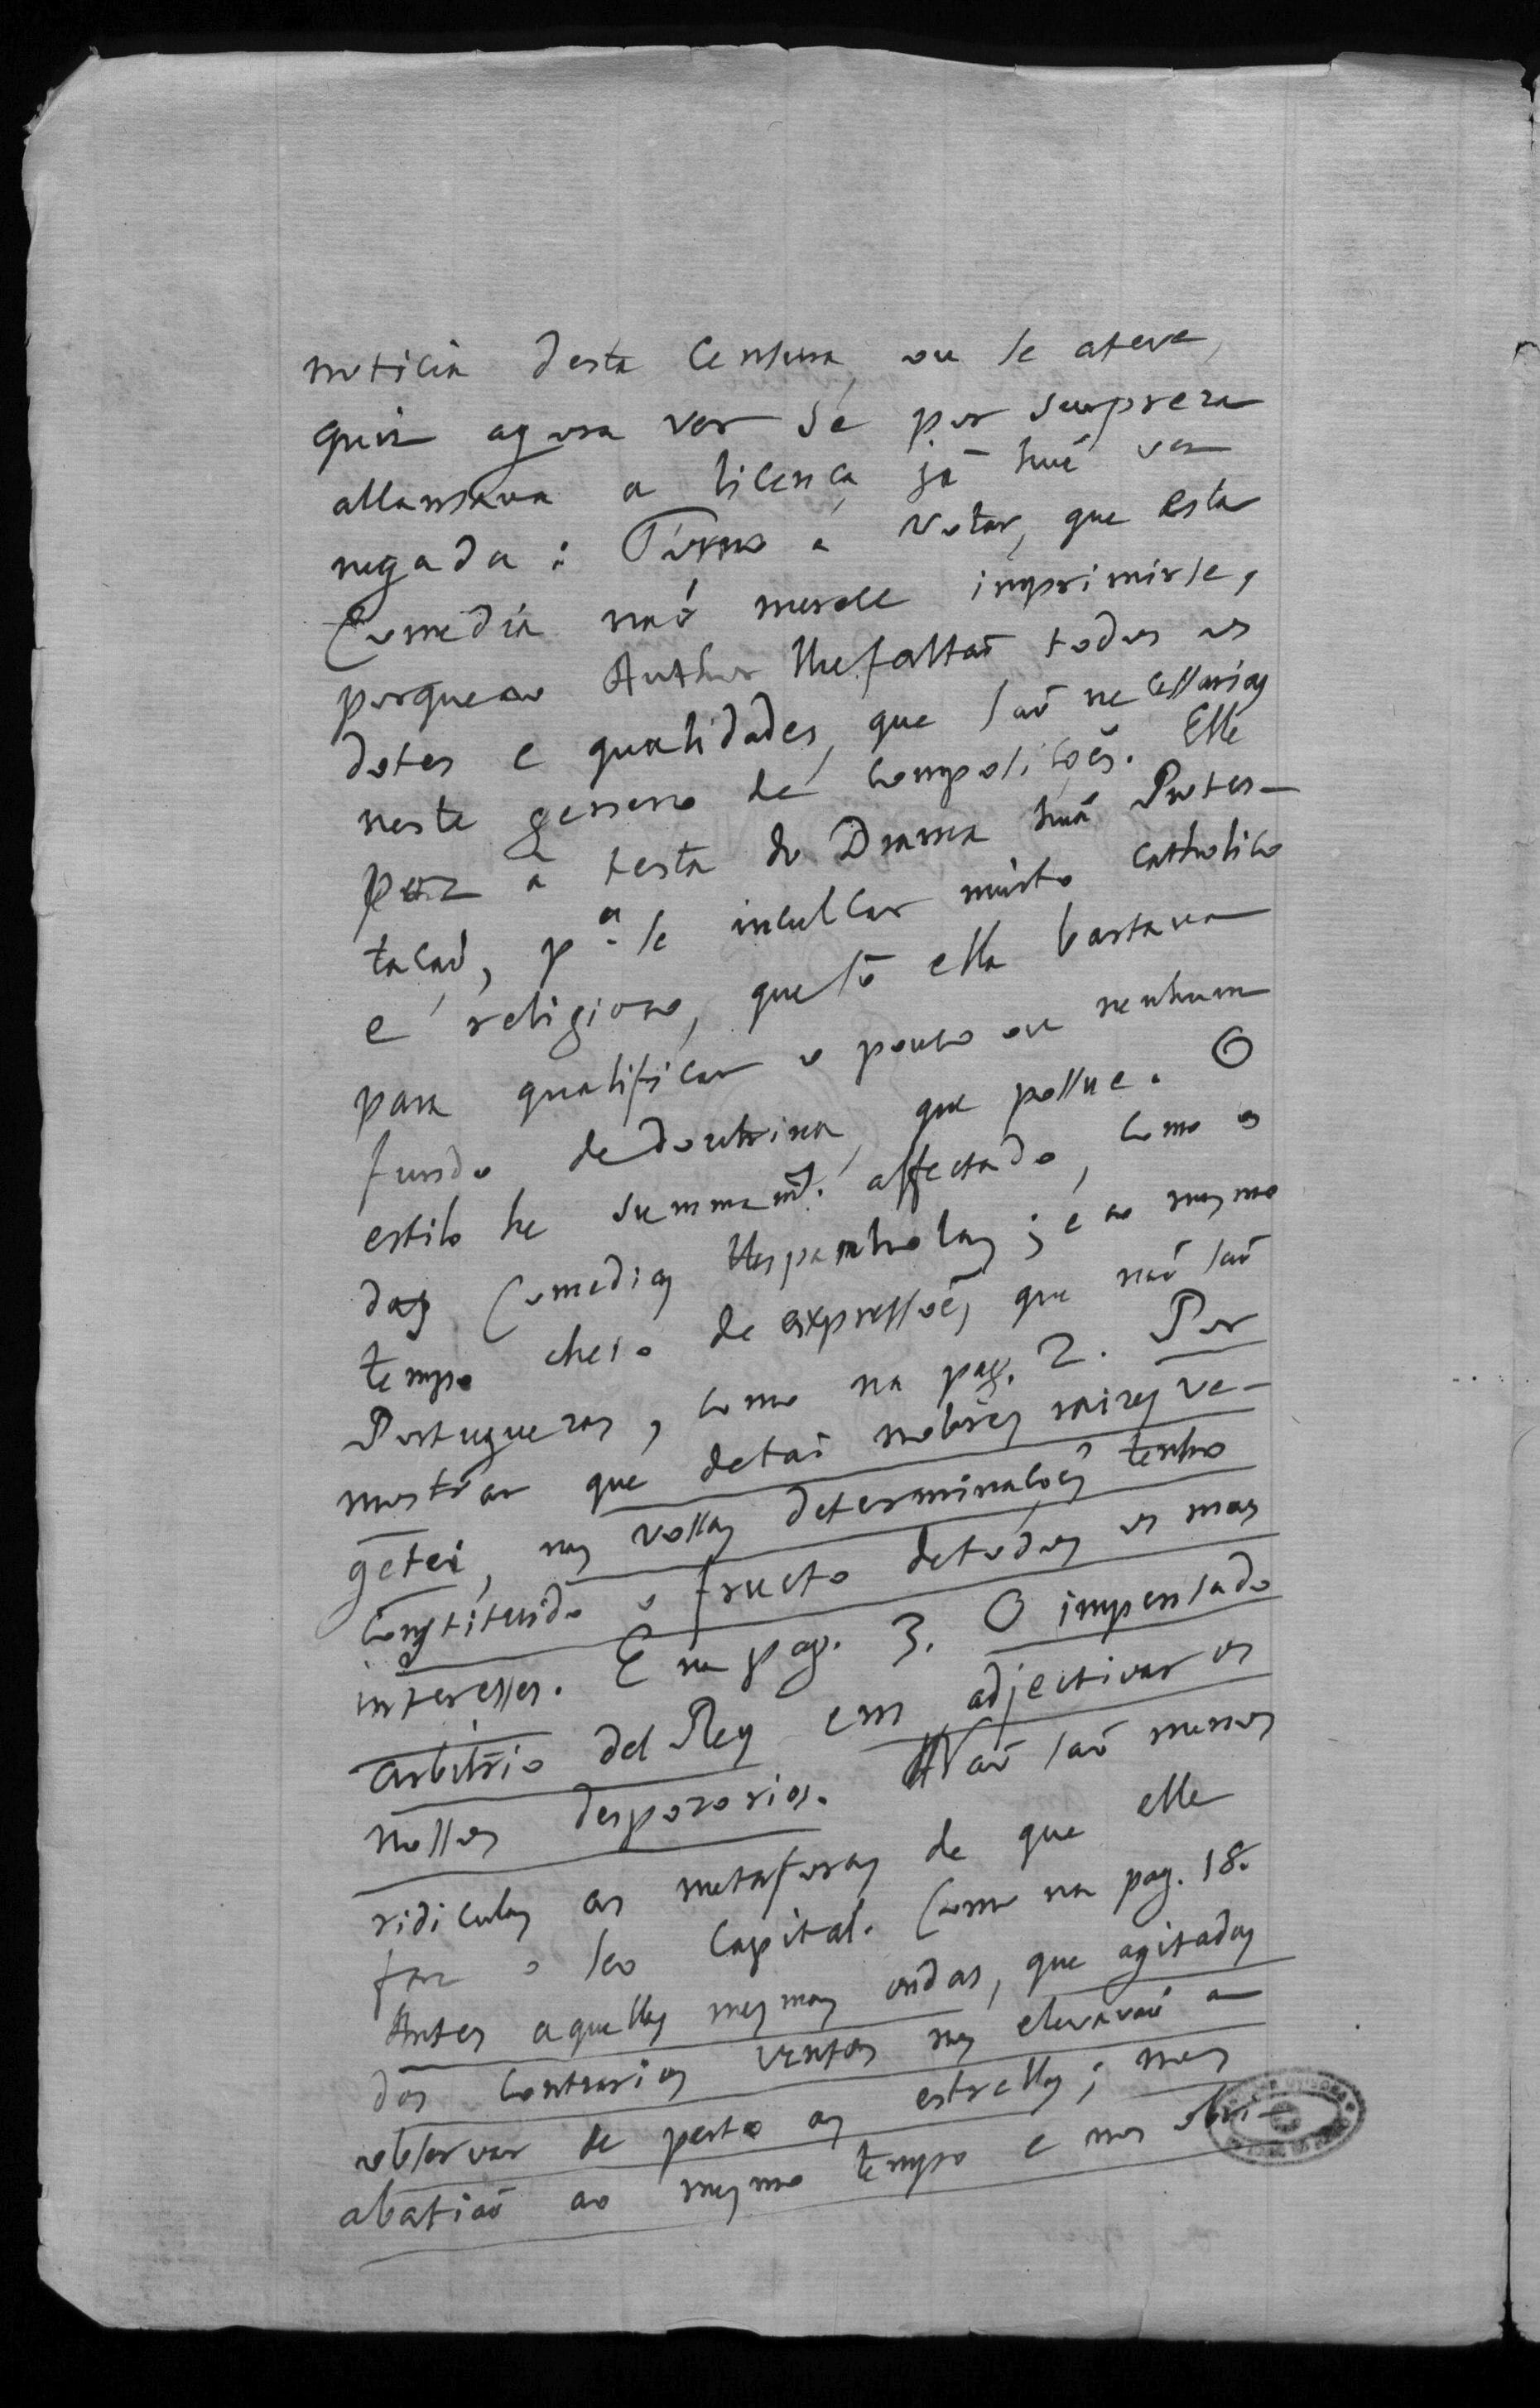 noticia desta Censura, ou se a teve,
quiz agora ver se por surpreza
alcansava a licença já huã vez
negada: Torno a votar, que esta
Comedia naõ merece imprimirse,
porque ao Author lhe faltaõ todos os
dotes e qualidades, que saõ necessarias
neste genero de composiçoẽs. Elle
poz a testa do Drama huã Protes-
taçaõ, p.ª se inculcar muito catholico
e religiozo, que só ella bastava
para qualificar o pouco ou nenhum
fundo de doutrina, que possue. O
estilo he summam.te affectado, como o
das Comedias Hespanholas; e ao mesmo
tempo cheio de expressoẽs, que naõ saõ
Portuguezas, como na pag. 2. Por
mostrar que de taõ nobres raizes ve-
getei, nas vossas determinaçoẽs tenho
constituido o fructo de todos os meus
interesses. E na pag. 3. O impensado
arbitrio del Rey em adjectivar os
nossos desposorios. Naõ saõ menos
ridiculas as metaforas de que elle
faz o seo capital. Como na pag. 18.
Antes aquellas mesmas ondas, que agitadas
dos contrarios ventos nos elevavaõ a
observar de perto as estrellas; nos
abatiaõ ao mesmo tempo e nos obri-